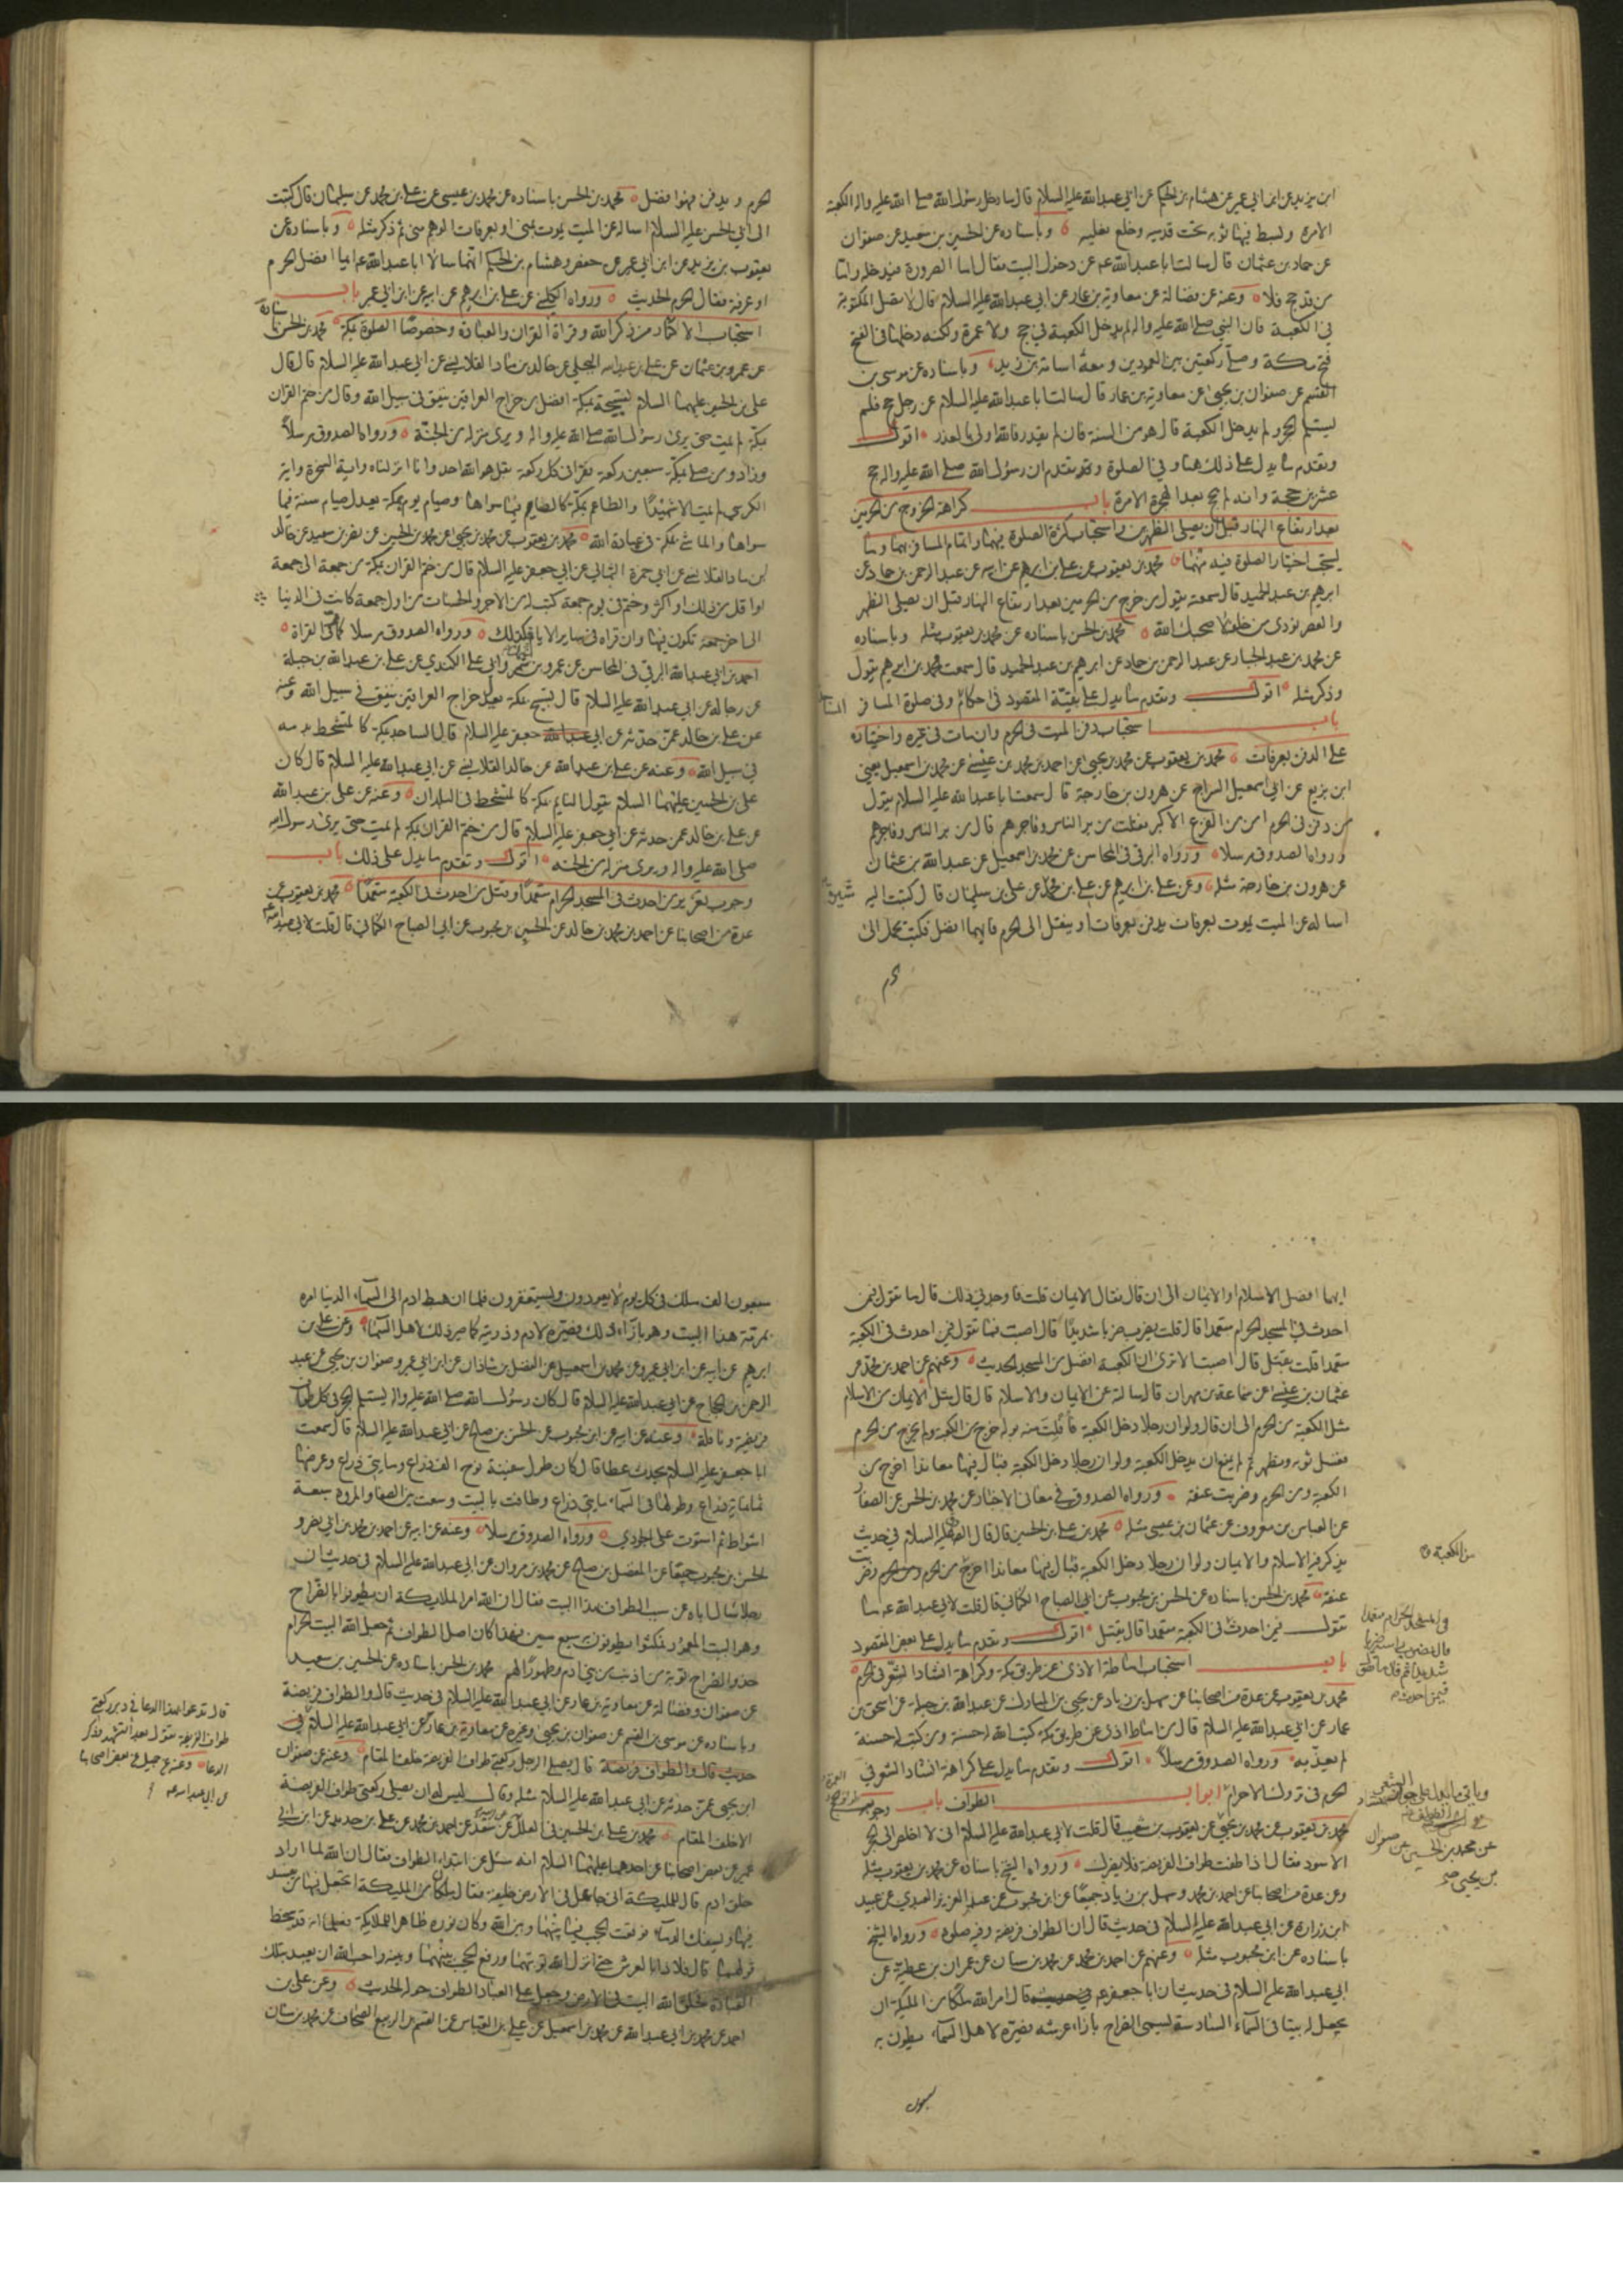 ابن يزيد عن ابن ابي عمير عن هشام بن الحكم عن ابي عبدالله عليه السلام قال ما دخل رسول الله صلى الله عليه واله الكعبة
الا مرة وبسط فيها ثوبه تحت قدميه وخلع نعليه وباسناده عن الحسين بن سعيد عن صفوان
عن حماد بن عثمان قال سالت ابا عبدالله عم عن دخول البيت فقال اما الصرورة فيدخله واما
من قد حج فلا وعنه عن فضالة عن معاوية بن عمار عن ابي عبدالله عليه السلام قال لا تصل المكتوبة
في الكعبة فان النبي صلى الله عليه واله لم يدخل الكعبة في حج ولا عمرة ولكنه دخلها في الفتح
فتح مكة وصلى ركعتين بين العمودين ومعه اسامة بن زيد وباسناده عن موسى بن
القسم عن صفوان بن يحيى عن معاوية بن عمار قال سالت ابا عبدالله عليه السلام عن رجل حج فلم
يستلم الحجر ولم يدخل الكعبة قال هو من السنة فان لم يقدر فالله اولى بالعذر اقول
وتقدم ما يدل على ذلك هنا وفي الصلوة وقد تقدم ان رسول الله صلى الله عليه واله حج
عشرين حجة وانه لم يحج بعد الهجرة الا مرة باب كراهة الخروج من الحرمين
بعد ارتفاع النهار قبل ان يصلى الظهرين واستحباب كثرة الصلوة فيهما واتمام المسافر بهما وما
يستحب اختيار الصلوة فيه منهما محمد بن يعقوب عن علي بن ابرهيم عن ابيه عن عبد الرحمن بن حماد عن
ابرهيم بن عبد الحميد قال سمعته يقول من خرج من الحرمين بعد ارتفاع النهار قبل ان يصلي الظهر
والعصر نودي من خلفه لا صحبك الله محمد بن الحسن باسناده عن محمد بن يعقوب مثله وباسناده
عن محمد بن عبد الجبار عن عبد الرحمن بن حماد عن ابرهيم بن عبد الحميد قال سمعت محمد بن ابرهيم يقول
وذكر مثله اقول وتقدم ما يدل على بقية المقصود في احكام وفي صلوة المسافر
باب استحباب دفن الميت في الحرم وان مات في غيره واختياره
على الدفن بعرفات محمد بن يعقوب عن محمد بن يحيى عن احمد بن محمد بن عيسى عن محمد بن اسمعيل يعني
ابن بزيع عن ابي اسمعيل السراج عن هرون بن خارجة قال سمعت ابا عبدالله عليه السلام يقول
من دفن في الحرم امن من الفزع الاكبر فقلت من بر الناس وفاجرهم قال من بر الناس وفاجرهم
ورواه الصدوق مرسلا ورواه البرقي في المحاسن عن محمد بن اسمعيل عن عبدالله بن عثمان
عن هرون بن خارجة مثله وعن علي بن ابرهيم عن علي بن محمد عن علي بن سليمان قال كتبت اليه
اساله عن الميت يموت بعرفات يدفن بعرفات او ينقل الى الحرم فايهما افضل فكتب يحمل الى
الحرم ويدفن فهو افضل محمد بن الحسن باسناده عن محمد بن عيسى عن علي بن محمد عن سليمان قال كتبت
الى ابي الحسن عليه السلام اساله عن الميت يموت بمنى او بعرفات الوهم مني ثم ذكر مثله وباسناده عن
يعقوب بن يزيد عن ابن ابي عمير عن حفص وهشام بن الحكم انهما سالا ابا عبدالله عم ايما افضل الحرم
او عرفة فقال الحرم الحديث ورواه الكليني عن علي بن ابرهيم عن ابيه عن ابن ابي عمير باب
استحباب الاكثار من ذكر الله وقراة القران والعبادة وخصوصا الصلوة بمكة محمد بن الحسن
عن عمرو بن عثمان عن علي بن عبدالله البجلي عن خالد بن ماد القلانسي عن ابي عبدالله عليه السلام قال قال
علي بن الحسين عليهما السلام تسبيحة بمكة افضل من خراج العراقين ينفق في سبيل الله وقال من ختم القران
بمكة لم يمت حتى يرى رسول الله صلى الله عليه واله ويرى منزله من الجنة ورواه الصدوق مرسلا
وزاد ومن صلى بمكة سبعين ركعة يقرا في كل ركعة بقل هو الله احد وانا انزلناه واية السخرة واية
الكرسي لم يمت الا شهيدا والطاعم بمكة كالصايم فيما سواها وصيام يوم بمكة يعدل صيام سنة فيما
سواها والماشي بمكة في عبادة الله محمد بن يعقوب عن محمد بن يحيى عن محمد بن الحسين عن نضر بن سعيد عن خالد
بن ماد القلانسي عن ابي حمزة الثمالي عن ابي جعفر عليه السلام قال من ختم القران بمكة من جمعة الى جمعة
او اقل من ذلك او اكثر وختم في يوم جمعة كتب له من الاجر والحسنات من اول جمعة كانت في الدنيا
الى اخر جمعة تكون فيها وان قراه في ساير الايام فكذلك ورواه الصدوق مرسلا كما في القراة
احمد بن ابي عبدالله البرقي في المحاسن عن عمرو بن عثمان وابي علي الكندي عن علي بن عبدالله بن جبلة
عن رجاله عن ابي عبدالله عليه السلام قال تسبيح بمكة يعدل خراج العراقين ينفق في سبيل الله وعنه
عن علي بن خالد عمن حدثه عن ابي جعفر عليه السلام قال الساجد بمكة كالمتشحط بدمه
في سبيل الله وعنه عن علي بن عبدالله عن خالد القلانسي عن ابي عبدالله عليه السلام قال كان
علي بن الحسين عليهما السلام يقول النايم بمكة كالمتشحط في البلدان وعنه عن علي بن عبدالله
عن علي بن خالد عمن حدثه عن ابي جعفر عليه السلام قال من ختم القران بمكة لم يمت حتى يرى رسول الله
صلى الله عليه واله ويرى منزله من الجنة اقول وتقدم ما يدل على ذلك باب
وجوب تعزير من احدث في المسجد الحرام متعمدا وقتل من احدث في الكعبة متعمدا محمد بن يعقوب عن
عدة من اصحابنا عن احمد بن محمد بن خالد عن الحسن بن محبوب عن ابي الصباح الكناني قال قلت لابي عبدالله
ايهما افضل الاسلام او الايمان الى ان قال فقال الايمان قلت فاوجدني ذلك قال ما تقول فيمن
احدث في المسجد الحرام متعمدا قال قلت يضرب ضربا شديدا قال اصبت فما تقول فيمن احدث في الكعبة
متعمدا قلت يقتل قال اصبت الا ترى ان الكعبة افضل من المسجد الحديث وعنهم عن احمد بن محمد عن
عثمان بن عيسى عن سماعة بن مهران قال سالته عن الايمان والاسلام قال قال مثل الايمان من الاسلام
مثل الكعبة من الحرم الى ان قال ولو ان رجلا دخل الكعبة فافلت منه بوله خرج من الكعبة ولم يخرج من الحرم
فغسل ثوبه وتطهر ثم لم يمنع ان يدخل الكعبة ولو ان رجلا دخل الكعبة فبال فيها معاندا اخرج من
الكعبة ومن الحرم وضربت عنقه ورواه الصدوق في معاني الاخبار عن محمد بن الحسن عن الصفار
عن العباس بن معروف عن عثمان بن عيسى مثله محمد بن علي بن الحسين قال قال الصادق عليه السلام في حديث
يذكر فيه الاسلام والايمان ولو ان رجلا دخل الكعبة فبال فيها معاندا اخرج من الحرم وضربت
من الكعبة
عنقه محمد بن الحسن باسناده عن الحسن بن محبوب عن ابي الصباح الكناني قال قلت لابي عبدالله عم ما
تقول فيمن احدث في الكعبة متعمدا قال يقتل اقول وتقدم ما يدل على بعض المقصود
باب استحباب اماطة الاذى عن طريق مكة وكراهة انشاد الشعر في الحرم
محمد بن يعقوب عن عدة من اصحابنا عن سهل بن زياد عن يحيى بن المبارك عن عبدالله بن جبلة عن اسحق بن
عمار عن ابي عبدالله عليه السلام قال من اماط اذى عن طريق مكة كتب الله له حسنة ومن كتب له حسنة
لم يعذبه ورواه الصدوق مرسلا اقول وتقدم ما يدل على كراهة انشاد الشعر في
الحرم في تروك الاحرام ابواب الطواف باب وجوب
محمد بن يعقوب عن محمد بن يحيى عن يعقوب بن شعيب قال قلت لابي عبدالله عليه السلام اني لا اخلص الى الحجر
الاسود فقال اذا طفت طواف الفريضة فلا يضرك ورواه الشيخ باسناده عن محمد بن يعقوب مثله
وعن عدة من اصحابنا عن احمد بن محمد وسهل بن زياد جميعا عن ابن محبوب عن عبد العزيز العبدي عن عبيد
ابن زرارة عن ابي عبدالله عليه السلام في حديث قال ان الطواف فريضة وفيه صلوة ورواه الشيخ
باسناده عن ابن محبوب مثله وعنهم عن احمد بن محمد عن محمد بن سنان عن عمران بن عطية عن
ابي عبدالله عليه السلام في حديث ان ابا جعفر عم قال امر الله ملكا من الملئكة ان
يجعل له بيتا في السماء السادسة يسمى الضراح بازاء عرشه فصيره لاهل السماء يطوف به
سبعون
سبعون الف ملك في كل يوم لا يعودون ويستغفرون فلما ان هبط ادم الى السماء الدنيا امره
بمرمة هذا البيت وهو بازاء ذلك فصيره لادم وذريته كما صير ذلك لاهل السماء وعن علي بن
ابرهيم عن ابيه عن ابن ابي عمير وعن محمد بن اسمعيل عن الفضل بن شاذان عن ابن ابي عمير وصفوان بن يحيى عن عبد
الرحمن بن الحجاج عن ابي عبدالله عليه السلام قال كان رسول الله صلى الله عليه واله يستلم الحجر في كل طواف
فريضة ونافلة وعنه عن ابيه عن ابن محبوب عن الحسن بن صالح عن ابي عبدالله عليه السلام قال سمعت
ابا جعفر عليه السلام يحدث عطا قال كان طول سفينة نوح الف ذراع ومايتي ذراع وعرضها
ثمانماية ذراع وطولها في السماء مايتي ذراع وطافت بالبيت وسعت بين الصفا والمروة سبعة
اشواط ثم استوت على الجودي ورواه الصدوق مرسلا وعنه عن ابيه عن احمد بن محمد بن ابي نصر و
الحسن بن محبوب جميعا عن المفضل بن صالح عن محمد بن مروان عن ابي عبدالله عليه السلام في حديث ان
رجلا سال اباه عن سبب الطواف بهذا البيت فقال ان الله امر الملايكة ان يطوفوا بالضراح
وهو البيت المعمور فمكثوا يطوفون به سبع سنين فهذا كان اصل الطواف ثم جعل الله البيت الحرام
حذو الضراح توبة لمن اذنب من بني ادم وطهورا لهم محمد بن الحسن باسناده عن الحسين بن سعيد
عن صفوان وفضالة عن معاوية بن عمار عن ابي عبدالله عليه السلام في حديث قال والطواف فريضة
وباسناده عن موسى بن القسم عن صفوان بن يحيى وغيره عن معاوية بن عمار عن ابي عبدالله عليه السلام في
حديث قال والطواف فريضة قال يصلي الرجل ركعتي طواف الفريضة خلف المقام وعنه عن صفوان
ابن يحيى عمن حدثه عن ابي عبدالله عليه السلام مثله وقال ليس له ان يصلي ركعتي طواف الفريضة
الا خلف المقام محمد بن علي بن الحسين في العلل عن ابيه عن سعد عن احمد بن محمد عن علي بن حديد عن ابن ابي
عمير عن بعض اصحابنا عن احدهما عليهما السلام انه سئل عن ابتداء الطواف فقال ان الله لما اراد
خلق ادم قال للملئكة اني جاعل في الارض خليفة فقال ملكان من الملئكة اتجعل فيها من يفسد
فيها ويسفك الدماء فوقعت الحجب فيما بينهما وبين الله وكان نوره ظاهرا للملايكة فعلما انه قد سخط
قولهما قال فلاذا بالعرش حتى انزل الله توبتهما ورفع الحجب بينهما وبينه واحب الله ان يعبد بتلك
العبادة فخلق الله البيت في الارض وجعل على العباد الطواف حوله الحديث وعن علي بن
احمد عن محمد بن ابي عبدالله عن محمد بن اسمعيل عن علي بن العباس عن القسم بن الربيع الصحاف عن محمد بن سنان
قال تدعو بهذا الدعا في دبر ركعتي
طواف الفريضة تقول بعد التشهد وذكر
الدعا وعنه عن جميل عن بعض اصحابنا